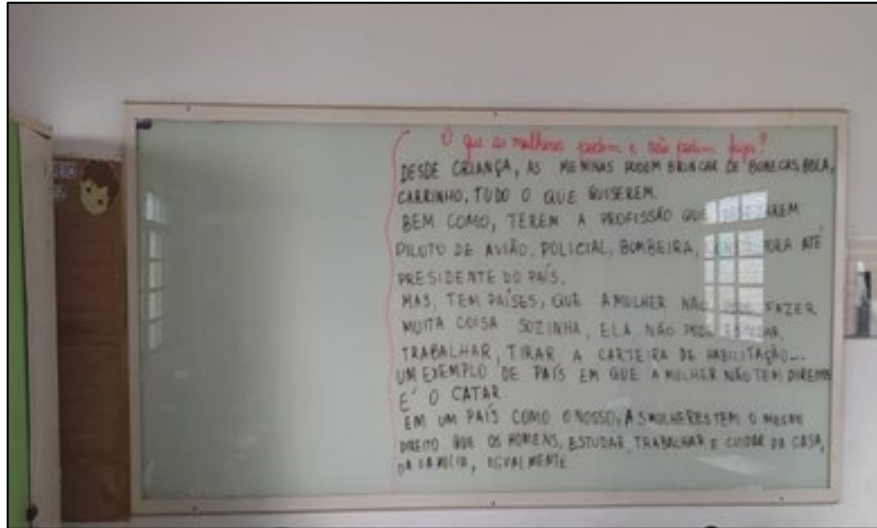 O que as mulheres podem e não podem fazer?
DESDE CRIANÇA, AS MENINAS PODEM BRINCAR DE BONECAS, BOLA,
CARRINHO, TUDO O QUE QUISEREM.
BEM COMO, TEREM A PROFISSÃO QUE
PILOTO DE AVIÃO, POLICIAL, BOMBEIRA, ATÉ
PRESIDENTE DO PAÍS.
MAS, TEM PAÍSES, QUE A MULHER NÃO PODE FAZER
MUITA COISA SOZINHA, ELA NÃO PODE ESTUDAR,
TRABALHAR, TIRAR A CARTEIRA DE HABILITAÇÃO...
UM EXEMPLO DE PAÍS EM QUE A MULHER NÃO TEM DIREITOS
É O CATAR.
EM UM PAÍS COMO O NOSSO, AS MULHERES TEM O MESMO
DIREITO QUE OS HOMENS, ESTUDAR, TRABALHAR E CUIDAR DA CASA,
DA FAMÍLIA, IGUALMENTE.